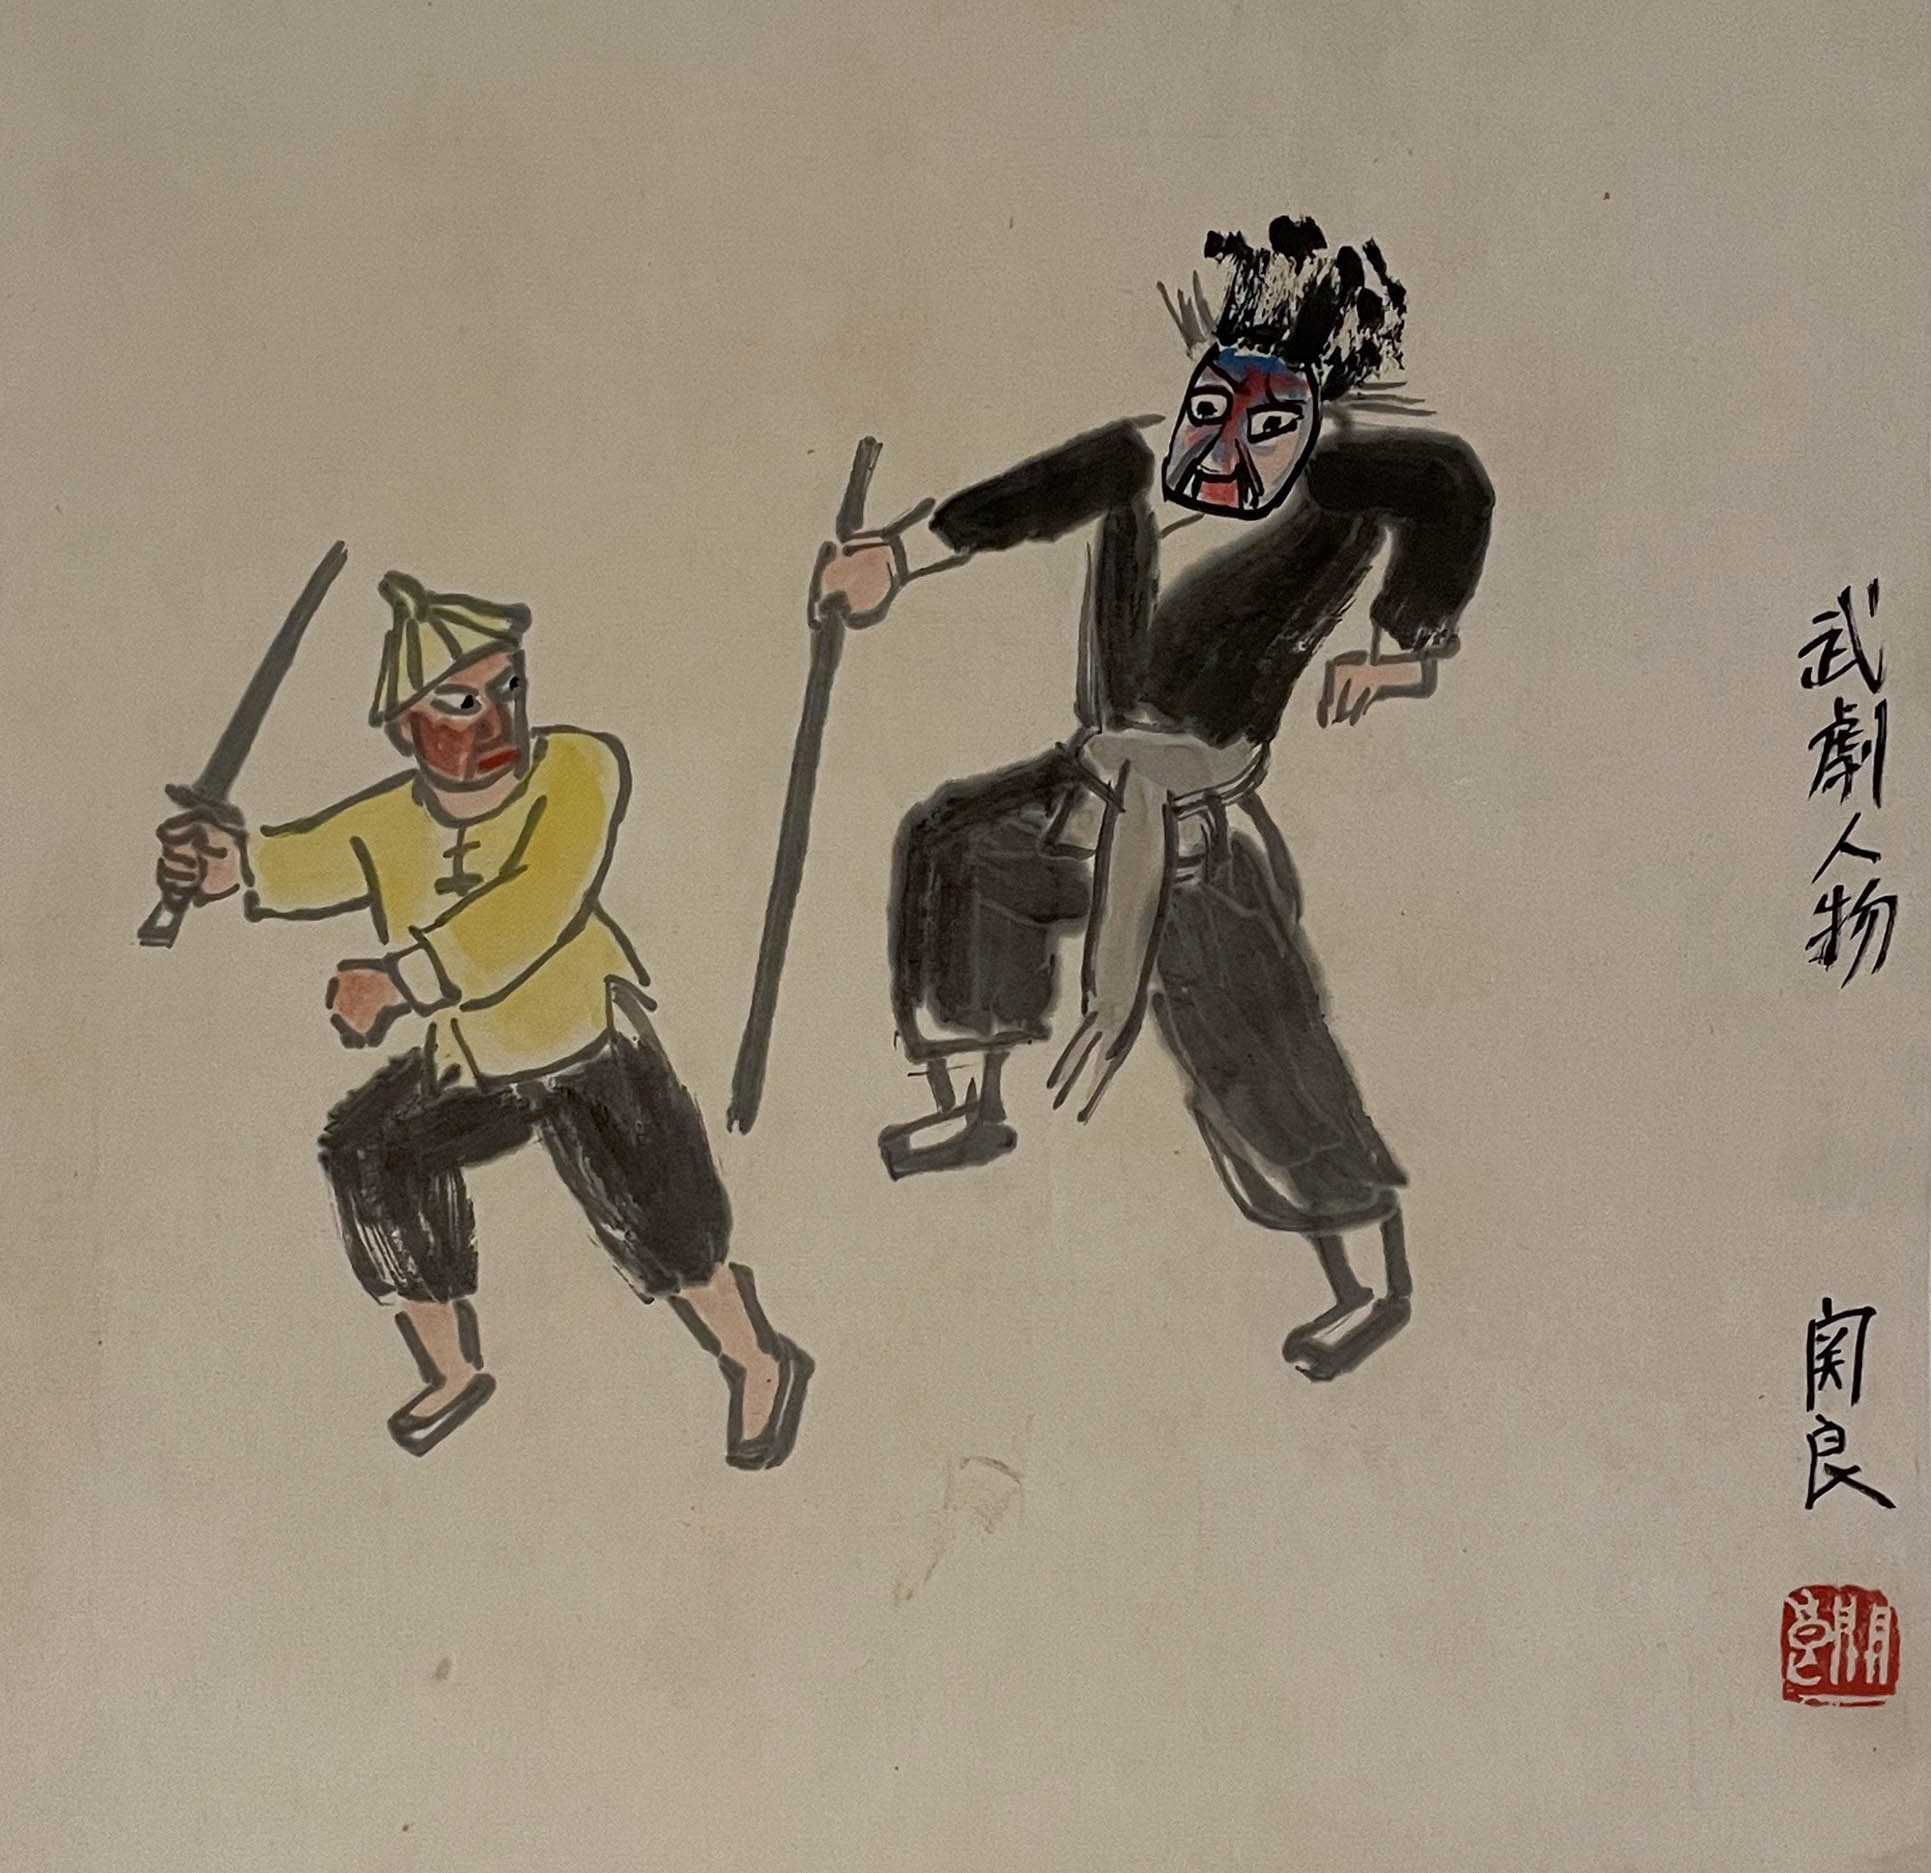 武劇人物
関良